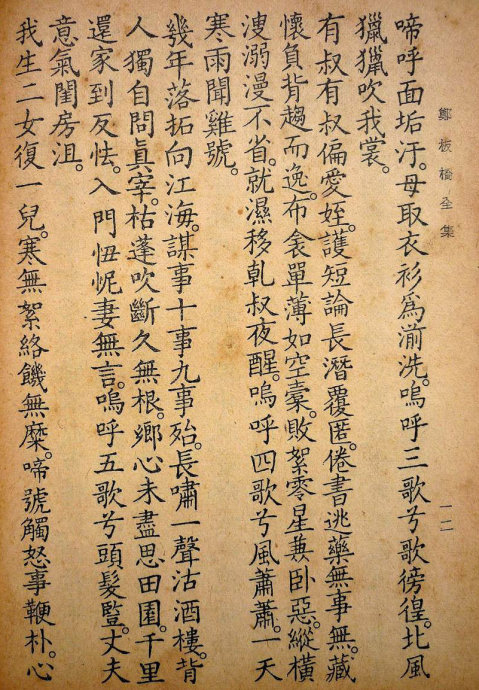 鄭板橋全集
一二
啼呼面垢汙。母取衣衫爲湔洗。嗚呼三歌兮歌徬徨。北風
獵獵吹我裳。
有叔有叔偏愛姪。護短論長潛覆匿。倦書逃藥無事無。藏
懷負背趨而逸。布衾單薄如空橐。敗絮零星兼卧惡。縱橫
溲溺漫不省。就濕移乹叔夜醒。嗚呼四歌兮風蕭蕭。一天
寒雨聞雞號。
幾年落拓向江海。謀事十事九事殆。長嘯一聲沽酒樓。背
人獨自問眞宰。枯蓬吹斷久無根。鄉心未盡思田園。千里
還家到反怯。入門忸怩妻無言。嗚呼五歌兮頭髮豎。丈夫
意氣閨房沮。
我生二女復一兒。寒無絮絡饑無糜。啼號觸怒事鞭朴。心